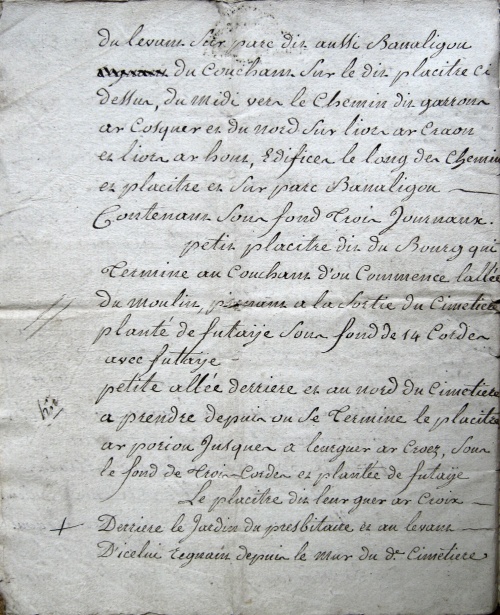 du levant sur parc dit aussi Banaligou
du Couchant sur le dit placitre ci
dessus, du midi vers le Chemin dit garront
ar Cosquer et du nord sur liors ar Craon
et liors ar hour, Edifices le long des Chemin
et placitre et sur parc Banaligou
Contenant sous fond trois Journaux.
petit placitre dit du Bourg qui
Termine au Couchant d'ou Commence lallée
du Moulin, prenant a la Sortie du Cimetiere
planté de futaÿe sous fond de 14 Cordes
avec futtaye -
petite allée derriere et au nord du Cimetiere
a prendre depuis ou se Termine le placitre
ar porziou Jusques a leurguer ar Croez, sous
le fond de trois Cordes et plantée de futaÿe
Le placitre dit leur guer ar Croix
+ Derriere le Jardin du presbitaire et au levant
D'icelui regnant depuis le mur du dt Cimetiere